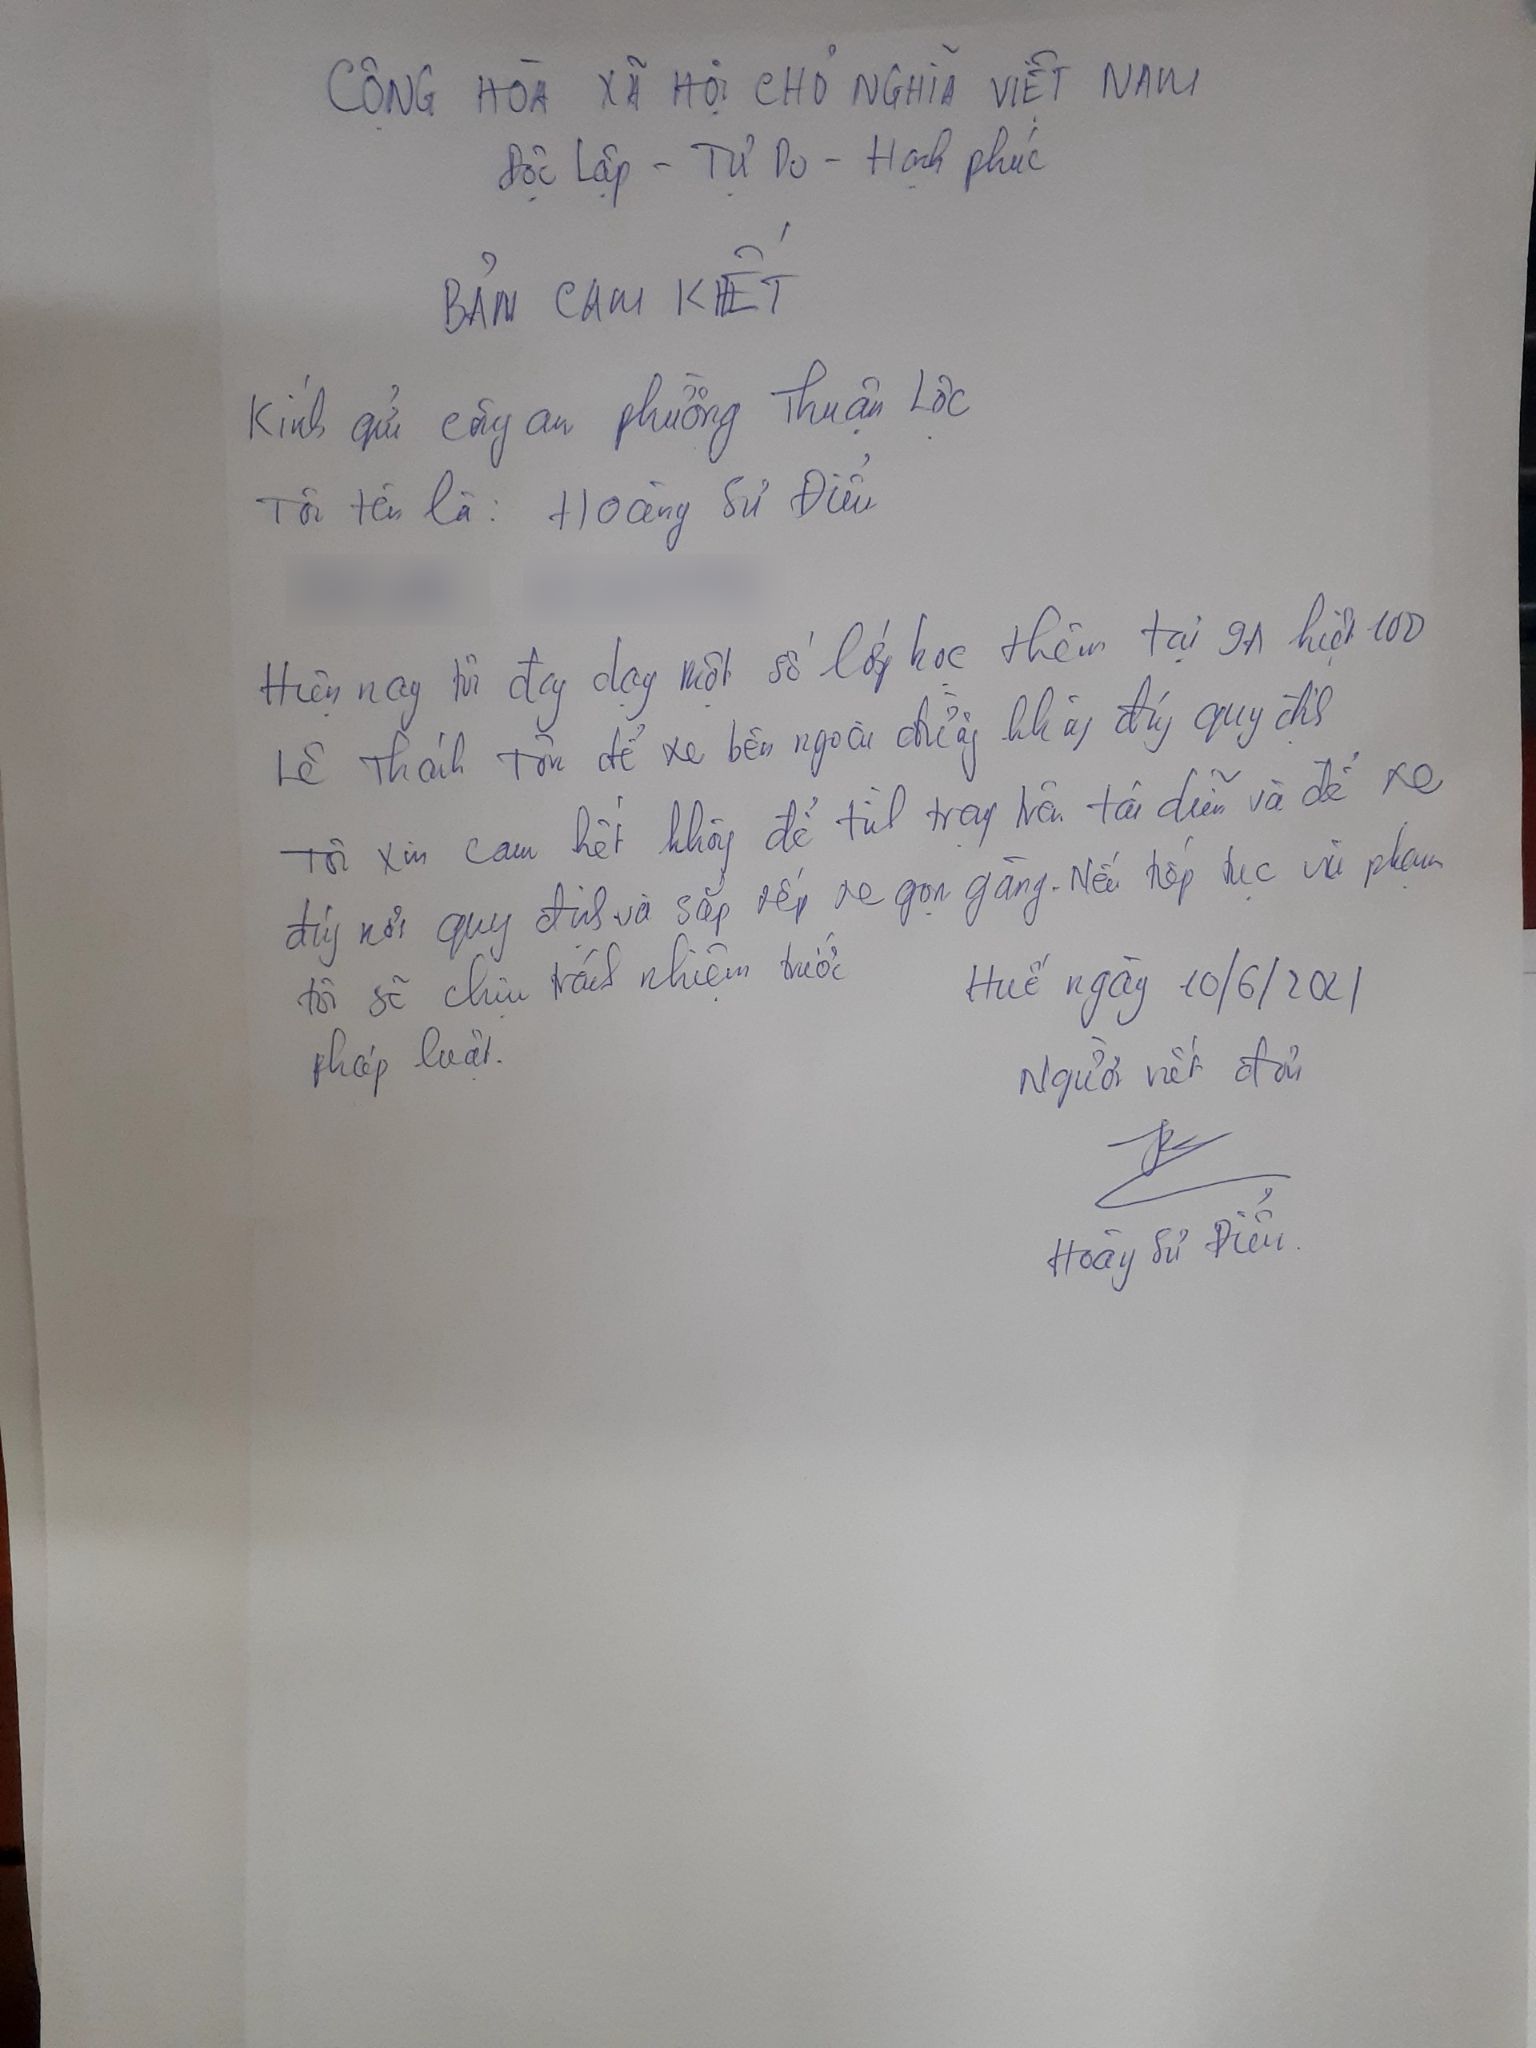 CỘNG HÒA XÃ HỘI CHỦ NGHĨA VIỆT NAM
Độc Lập - Tự Do - Hạnh phúc
BẢN CAM KẾT
Kính gửi công an phường Thuận Lộc
Tôi tên là: Hoàng Sử Điểu
Hiện nay tôi đang dạy một số lớp học thêm tại 9A kiệt 100
Lê Thánh Tôn để xe bên ngoài đường không đúng quy định
Tôi xin cam kết không để tình trạng trên tái diễn và để xe
đúng nơi quy định và sắp xếp xe gọn gàng. Nếu tiếp tục vi phạm
tôi sẽ chịu trách nhiệm trước
pháp luật.
Huế ngày 10/6/2021
Người viết đơn
Hoàng Sử Điểu.